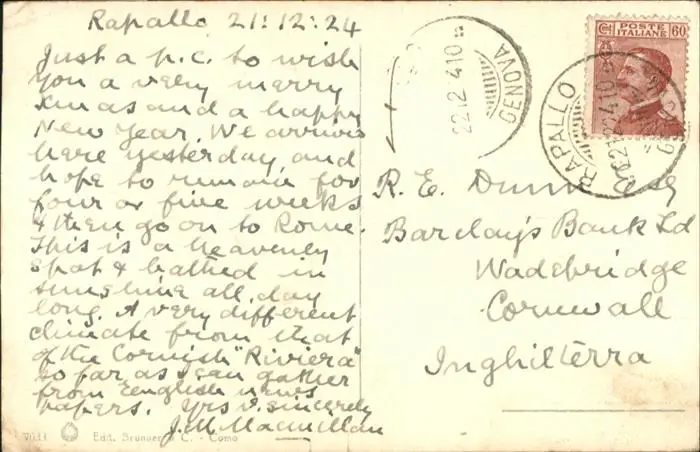 Rapallo 21:12:24
Just a p.c. to wish
you a very merry
Xmas and a happy
New Year. We arrived
here yesterday and
hope to remain for
four or five weeks
& then go on to Rome.
This is a heavenly
spot & bathed in
sunshine all day
long. A very different
climate from that
of the Cornish "Riviera"
so far as I can gather
from English news
papers. Yrs v. sincerely
J.M. Macmillan
R. E. Dunn Esq
Barclay's Bank Ld
Wadebridge
Cornwall
Inghilterra
Cent 60
POSTE
ITALIANE
GENOVA
RAPALLO
7011 Edit. Brunner & C. - Como